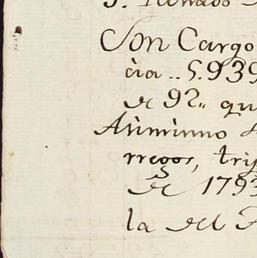 Son Cargo
cia .. 5.939
de 92,, qu
Asimismo
rregos, tri
de 1793
la del